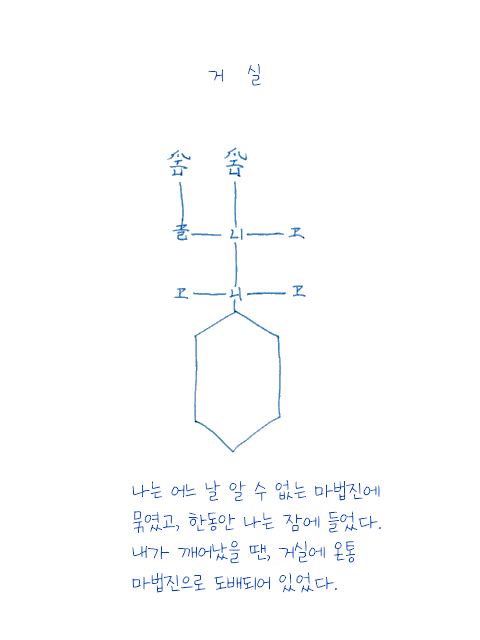 거 실
숍 숍
졸 리 고
고 너 고
나는 어느 날 알 수 없는 마법진에
묶였고, 한동안 나는 잠에 들었다.
내가 깨어났을 땐, 거실에 온통
마법진으로 도배되어 있었다.